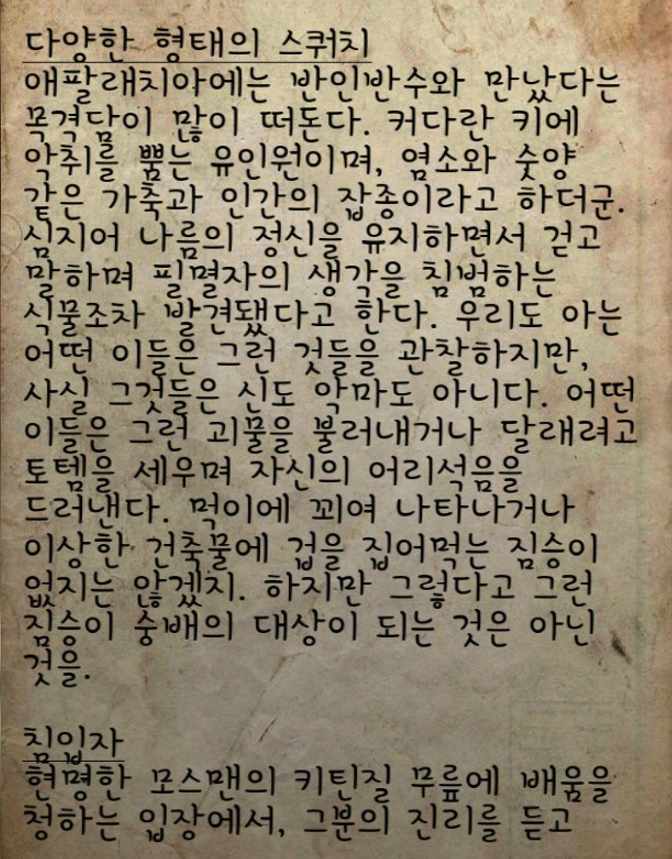 다양한 형태의 스쿼치
애팔래치아에는 반인반수와 만났다는
목격담이 많이 떠돈다. 커다란 키에
악취를 뿜는 유인원이며, 염소와 숫양
같은 가축과 인간의 잡종이라고 하더군.
심지어 나름의 정신을 유지하면서 걷고
말하며 필멸자의 생각을 침범하는
식물조차 발견됐다고 한다. 우리도 아는
어떤 이들은 그런 것들을 관찰하지만,
사실 그것들은 신도 악마도 아니다. 어떤
이들은 그런 괴물을 불러내거나 달래려고
토템을 세우며 자신의 어리석음을
드러낸다. 먹이에 꾀여 나타나거나
이상한 건축물에 겁을 집어먹는 짐승이
없지는 않겠지. 하지만 그렇다고 그런
짐승이 숭배의 대상이 되는 것은 아닌
것을.
침입자
현명한 모스맨의 키틴질 무릎에 배움을
청하는 입장에서, 그분의 진리를 듣고